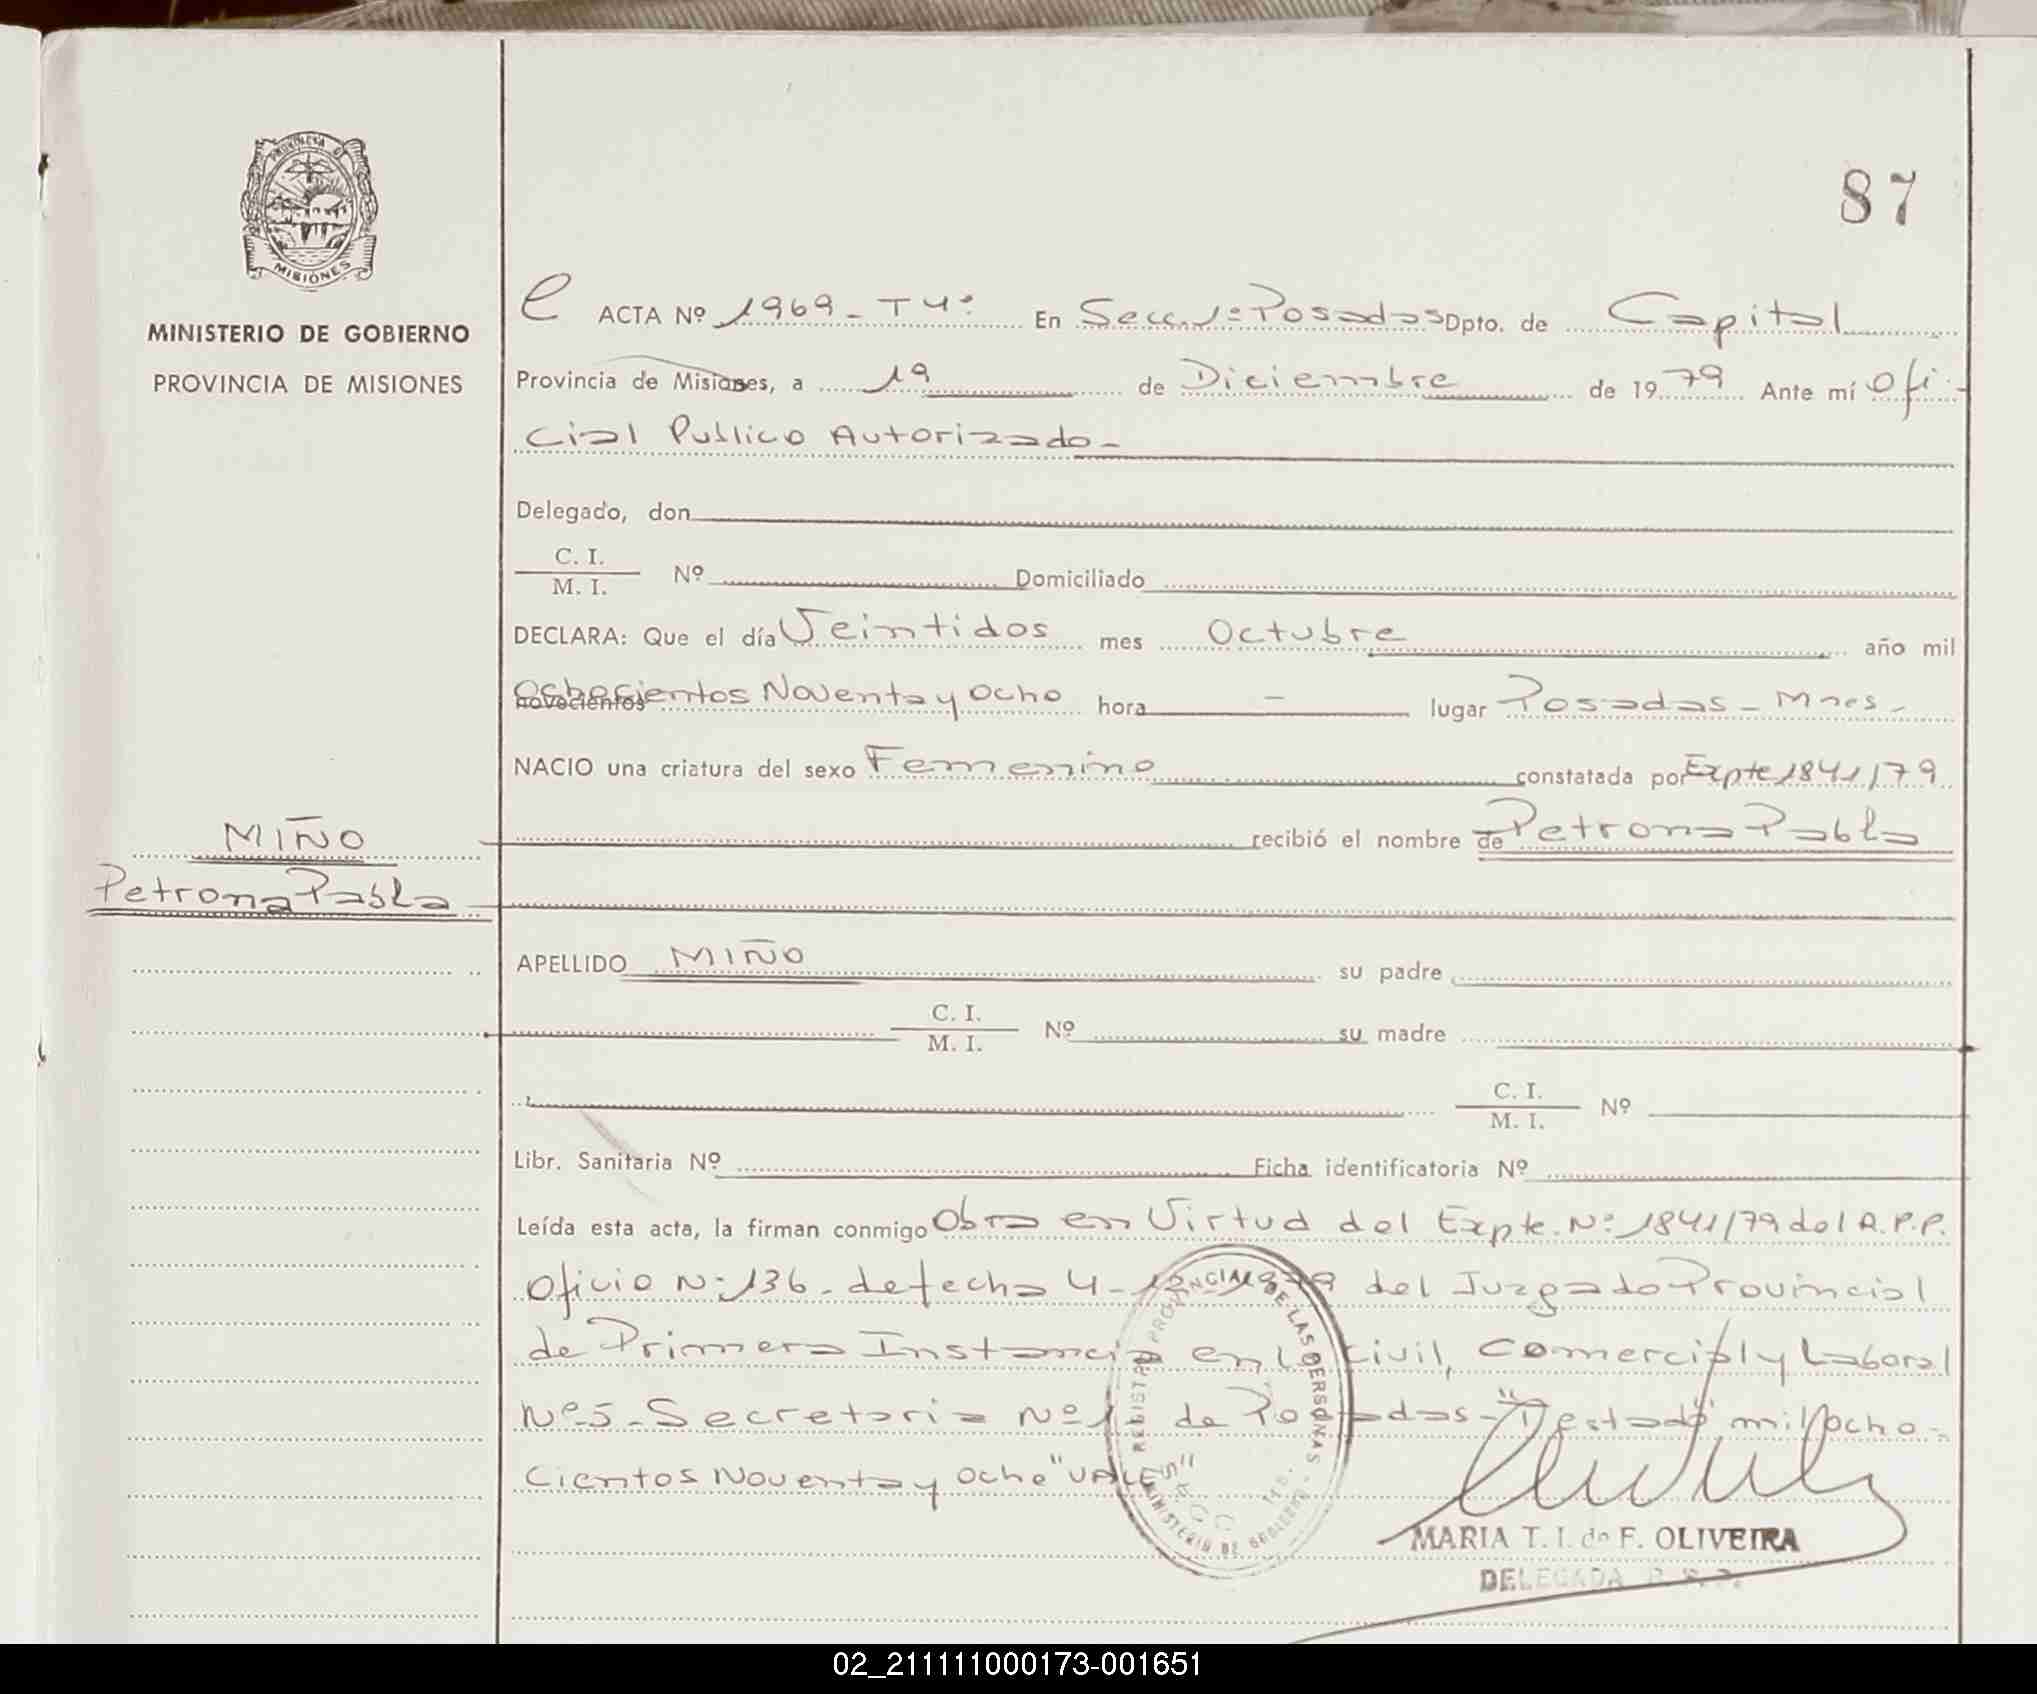 PROVINCIA DE
MISIONES
MINISTERIO DE GOBIERNO
PROVINCIA DE MISIONES
87
ACTA Nº 1969 - T4º En Secc. 1ª Posadas Dpto. de Capital
Provincia de Misiones, a 19 de Diciembre de 1979 Ante mí Ofi-
cial Publico Autorizado -
Delegado, don
C. I.
M. I. Nº Domiciliado
DECLARA: Que el día Veintidos mes Octubre año mil
novecientos Ochocientos Noventa y Ocho hora - lugar Posadas - Mnes -
NACIO una criatura del sexo Femenino constatada por Expte 1841/79
recibió el nombre de Petrona Pabla
MIÑO
Petrona Pabla
APELLIDO MIÑO su padre
C. I.
M. I. Nº su madre
C. I.
M. I. Nº
Libr. Sanitaria Nº Ficha identificatoria Nº
Leída esta acta, la firman conmigo Obra en Virtud del Expte. Nº 1841/79 del R.P.P.
Oficio Nº 136 - de fecha 4 - del Juzgado Provincial
de Primera Instancia en lo Civil, Comercial y Laboral
Nº 5 - Secretaria Nº 1 de Posadas - "Testado" mil ocho-
cientos Noventa y Ocho "VALE"
REGISTRO PROVINCIAL DE LAS PERSONAS
MINISTERIO DE GOBIERNO
MARIA T. I. de F. OLIVEIRA
DELEGADA R. P. P.
02_211111000173-001651